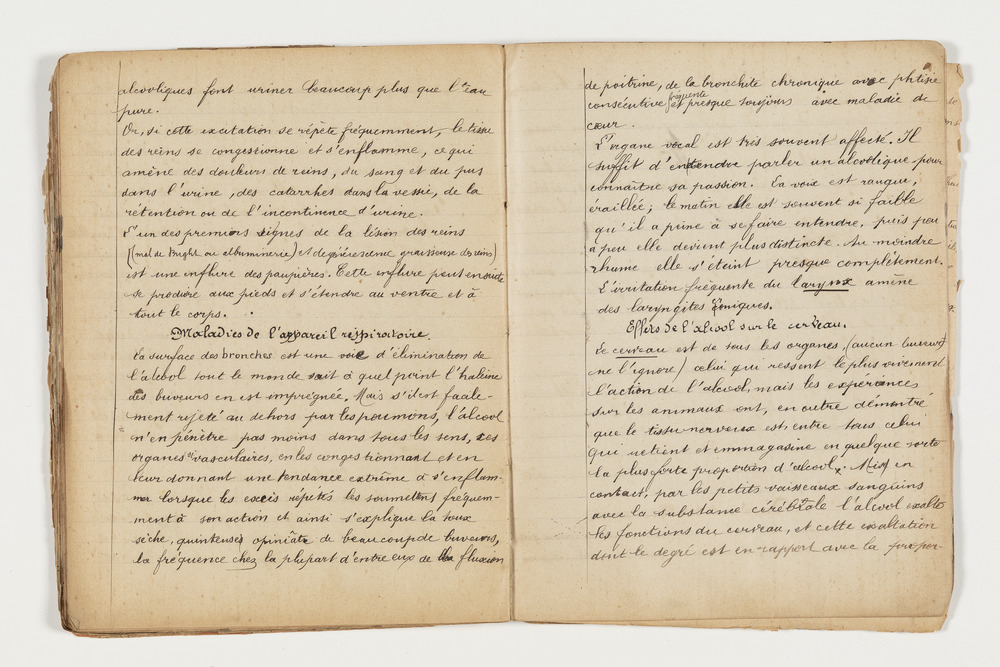 alcooliques font uriner beaucoup plus que l'eau
pure.
Or, si cette excitation se répète fréquemment, le tissu
des reins se congestionne et s'enflamme, ce qui
amène des douleurs de reins, du sang et du pus
dans l'urine, des catarrhes dans la vessie, de la
rétention ou de l'incontinence d'urine.
L'un des premiers signes de la lésion des reins
(mal de Bright ou albuminerie) et dégénérescence graisseuse des reins)
est une enflure des paupières. Cette enflure peut ensuite
se produire aux pieds et s'étendre au ventre et à
tout le corps.
Maladies de l'appareil respiratoire.
La surface des bronches est une voie d'élimination de
l'alcool tout le monde sait à quel point l'haleine
des buveurs en est imprégnée. Mais s'il est facile-
ment rejeté au dehors par les poumons, l'alcool
n'en pénètre pas moins dans tous les sens, ces
organes vasculaires, en les congestionnant et en
leur donnant une tendance extrême à s'enflam-
mer lorsque les excès répétés les soumettent fréquem-
ment à son action et ainsi s'explique la toux
sèche, quinteuse, opiniâtre de beaucoup de buveurs,
la fréquence chez la plupart d'entre eux de la fluxion
de poitrine, de la bronchite chronique avec phtisie
consécutive fréquente et presque toujours avec maladie de
cœur.
L'organe vocal est très souvent affecté. Il
suffit d'entendre parler un alcoolique pour
connaître sa passion. La voix est rauque,
éraillée; le matin elle est souvent si faible
qu'il a peine à se faire entendre, puis peu
à peu elle devient plus distincte. Au moindre
rhume elle s'éteint presque complètement.
L'irritation fréquente du larynx amène
des laryngites
Effets de l'alcool sur le cerveau.
Le cerveau est de tous les organes, (aucun buveur
ne l'ignore) celui qui ressent le plus vivement
l'action de l'alcool, mais les expériences
sur les animaux ont, en outre démontré
que le tissu nerveux est entre tous celui
qui retient et emmagasine en quelque sorte
la plus forte proportion d'alcool. Mis en
contact, par les petits vaisseaux sanguins
avec la substance cérébrale l'alcool exalte
les fonctions du cerveau, et cette exaltation
dont le degré est en rapport avec la propor-